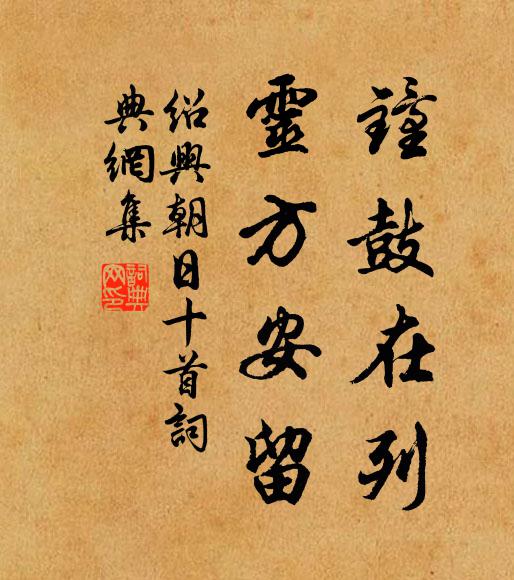 鐘鼓在列
靈方安留
紹興朝日十首詞
典網集
詞典網印